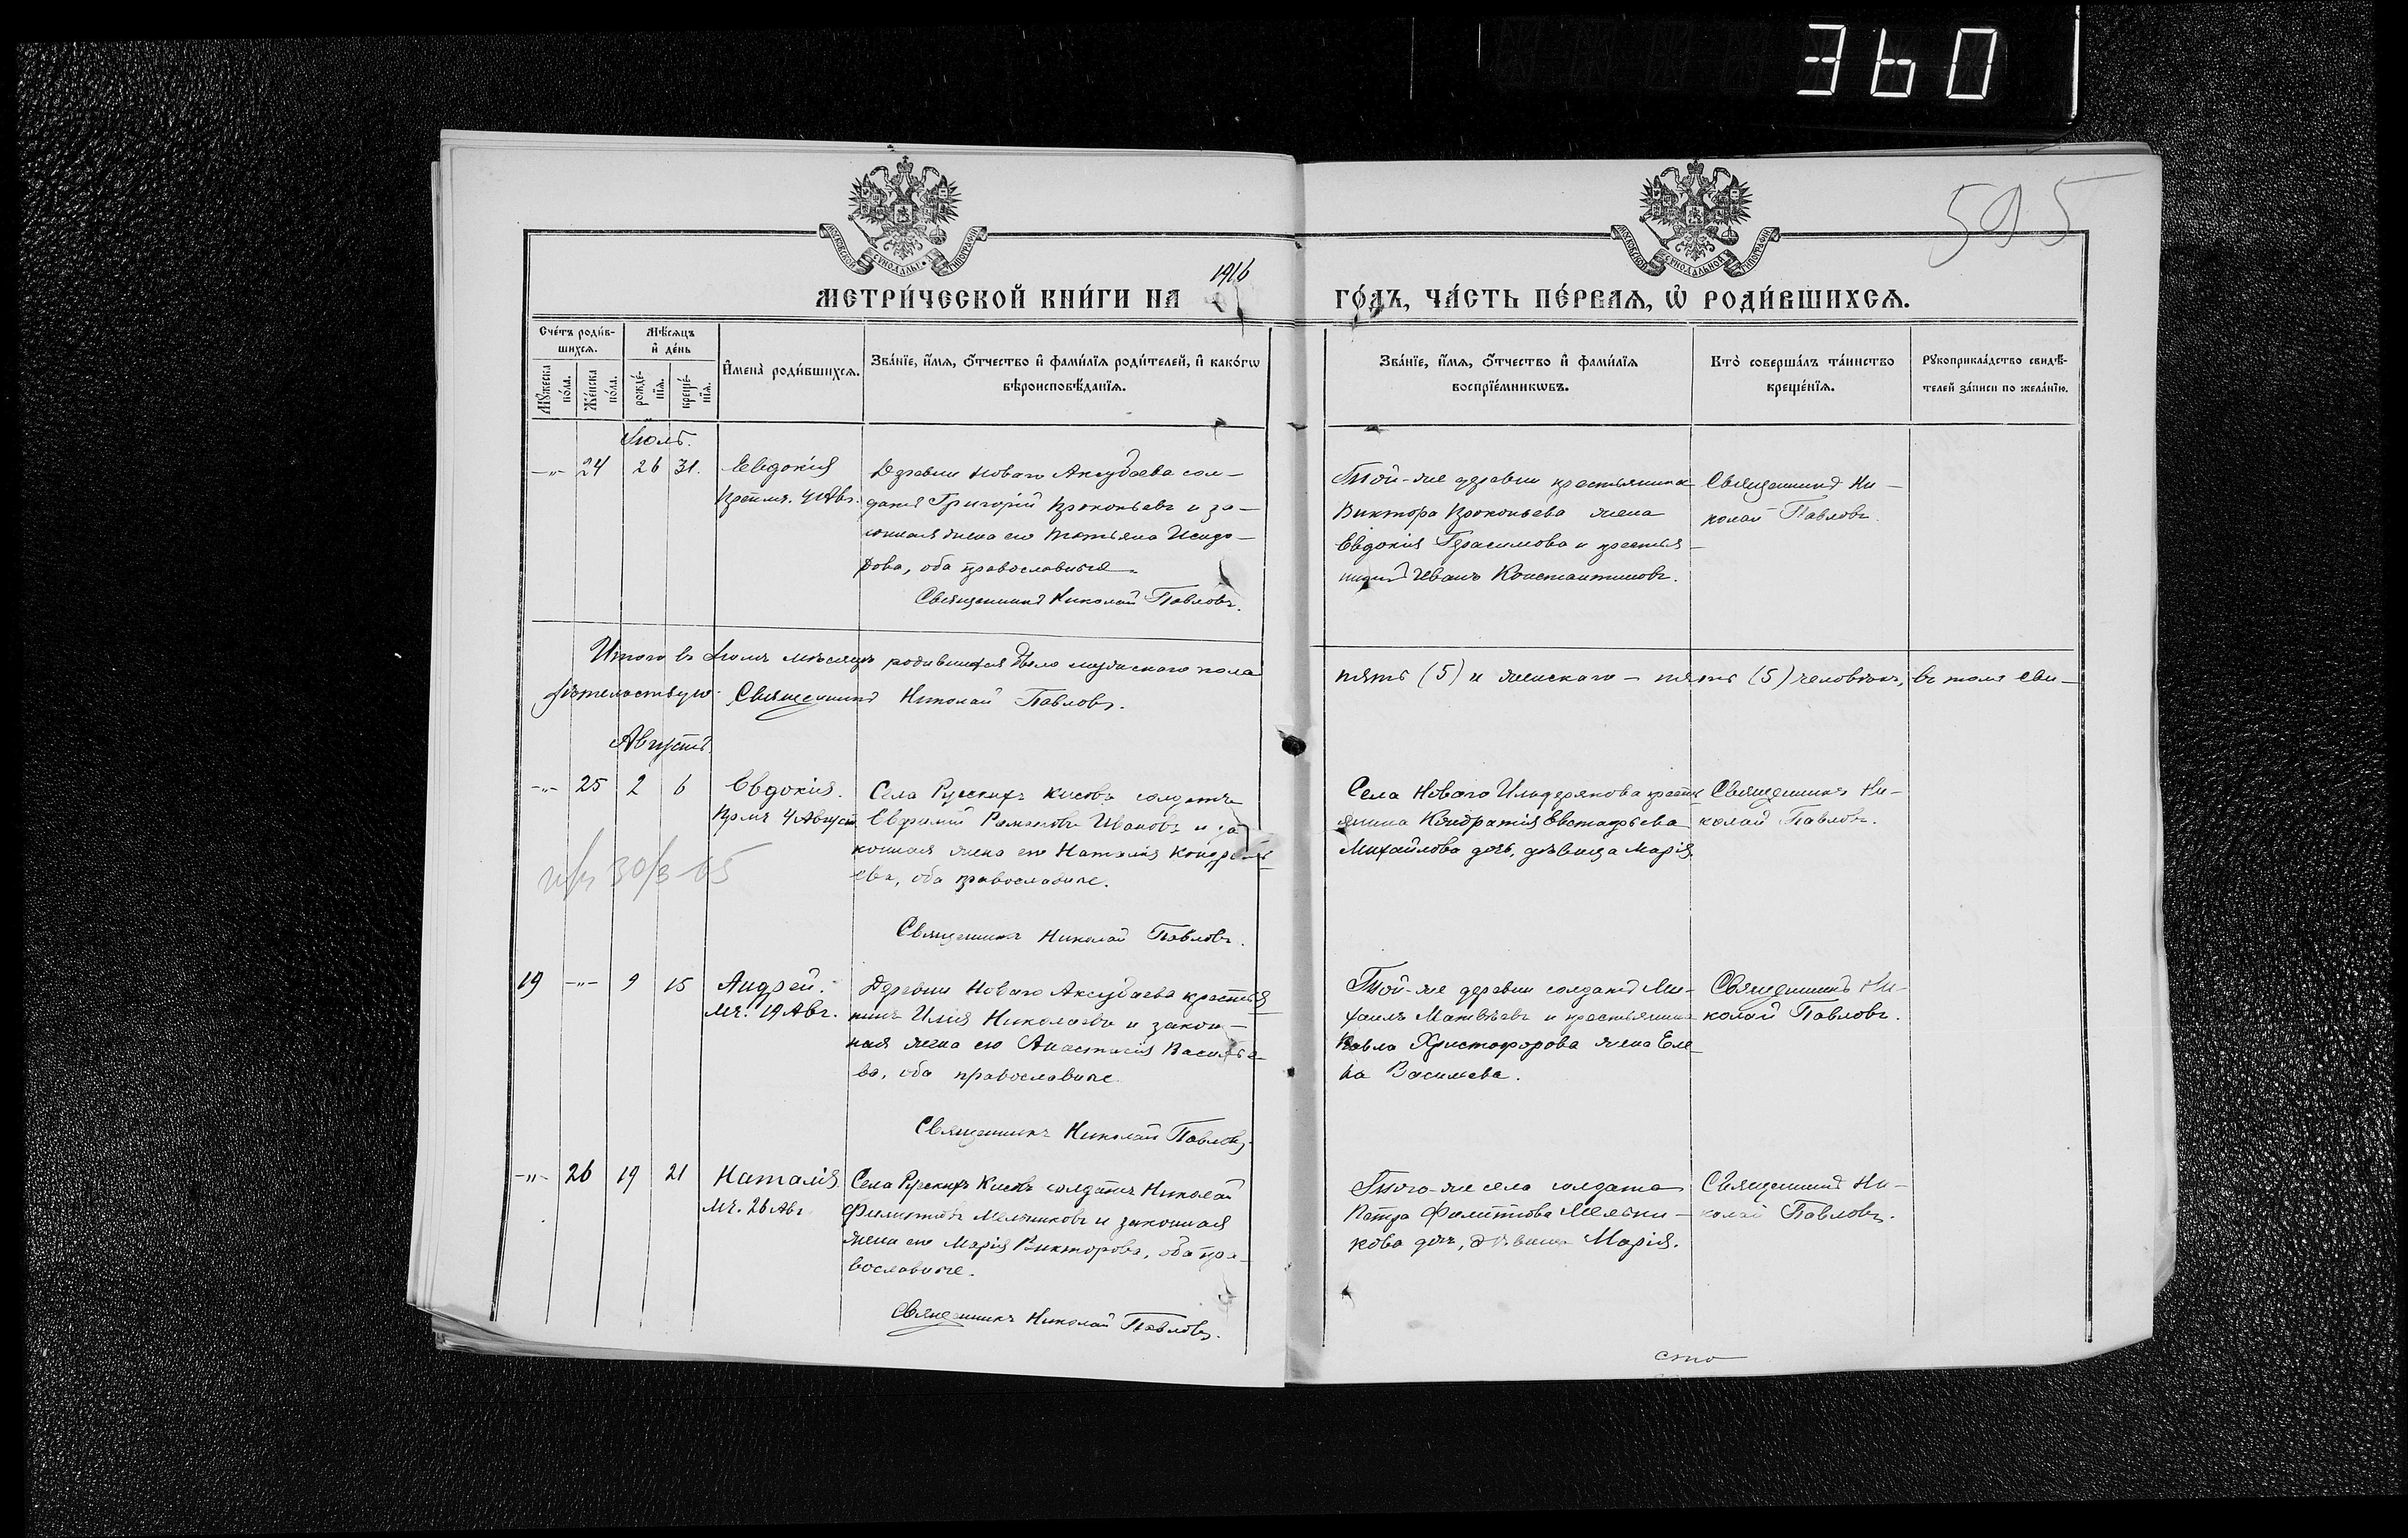 360
595
МОСКОВСКОЙ СѴНОДАЛЬН. ТИПОГРАФІИ
МОСКОВСКОЙ СѴНОДАЛЬНОЙ ТИПОГРАФІИ
1916
МЕТРИ́ЧЕСКОЙ КНИ́ГИ НА ГО́ДЪ, ЧА́СТЬ ПЕ́РВАѦ, Ѡ҆ РОДИ́ВШИХСѦ.
Сче́тъ роди́в-
шихсѧ.
Мꙋ́жеска по́ла.
Же́нска по́ла.
Мѣ́сѧцъ
и҆ де́нь
рожде́-
нїѧ.
креще́-
нїѧ.
И҆мена̀ роди́вшихсѧ.
Зва́нїе, и҆́мѧ, ѻ҆́тчество и҆ фами́лїѧ роди́телей, и҆ како́гѡ
вѣроисповѣ́данїѧ.
Зва́нїе, и҆́мѧ, ѻ҆́тчество и҆ фами́лїѧ
воспрїе́мникѡвъ.
Кто̀ соверша́лъ та́инство
креще́нїѧ.
Рꙋкоприкла́дство свидѣ́-
телей за́писи по жела́нїю.
Іюль.
-"- 24 26 31.
Евдокія
4 Авг.
Деревни Новаго Аксубаева сол-
датъ Григорій Прокопьевъ и за-
конная жена его Татьяна Исидо-
рова, оба православные.
Священникъ Николай Павловъ.
Той-же деревни крестьянина
Виктора Прокопьева жена
Евдокія Герасимова и крестья-
нинъ Иванъ Константиновъ.
Священникъ Ни-
колай Павловъ.
Итого въ Іюлѣ мѣсяцѣ родившихся было мужескаго пола пять (5) и женскаго - пять (5) человѣкъ, въ томъ сви-
дѣтельствую Священникъ Николай Павловъ.
Августъ.
-"- 25 2 6
Евдокія.
4 Август.
Села Русскихъ Кисовъ солдатъ
Евфимій Романовъ Ивановъ и за-
конная жена его Наталія Кондрать-
ева, оба православные.
Священникъ Николай Павловъ.
Села Новаго Ильдерякова крест
янина Кондратія Евстафьева
Михайлова дочь, дѣвица Марія.
Священникъ Ни-
колай Павловъ.
30/3-65
19 -"- 9 15
Андрей.
мч. 19 Авг.
Деревни Новаго Аксубаева крестья
нинъ Илія Николаевъ и закон-
ная жена его Анастасія Василье-
ва, оба православные.
Священникъ Николай Павловъ.
Той-же деревни солдатъ Ми-
хаилъ Матвѣевъ и крестьянина
Павла Христофорова жена Еле
на Васильева.
Священникъ Ни-
колай Павловъ.
-"- 26 19 21
Наталія.
мч. 26 Авг.
Села Русскихъ Кисовъ солдатъ Николай
Филипповъ Мельниковъ и законная
жена его Марія Викторова, оба пра-
вославные.
Священникъ Николай Павловъ.
Того-же села солдата
Петра Филиппова Мельни-
кова дочь, дѣвица Марія.
Священникъ Ни-
колай Павловъ.
сто